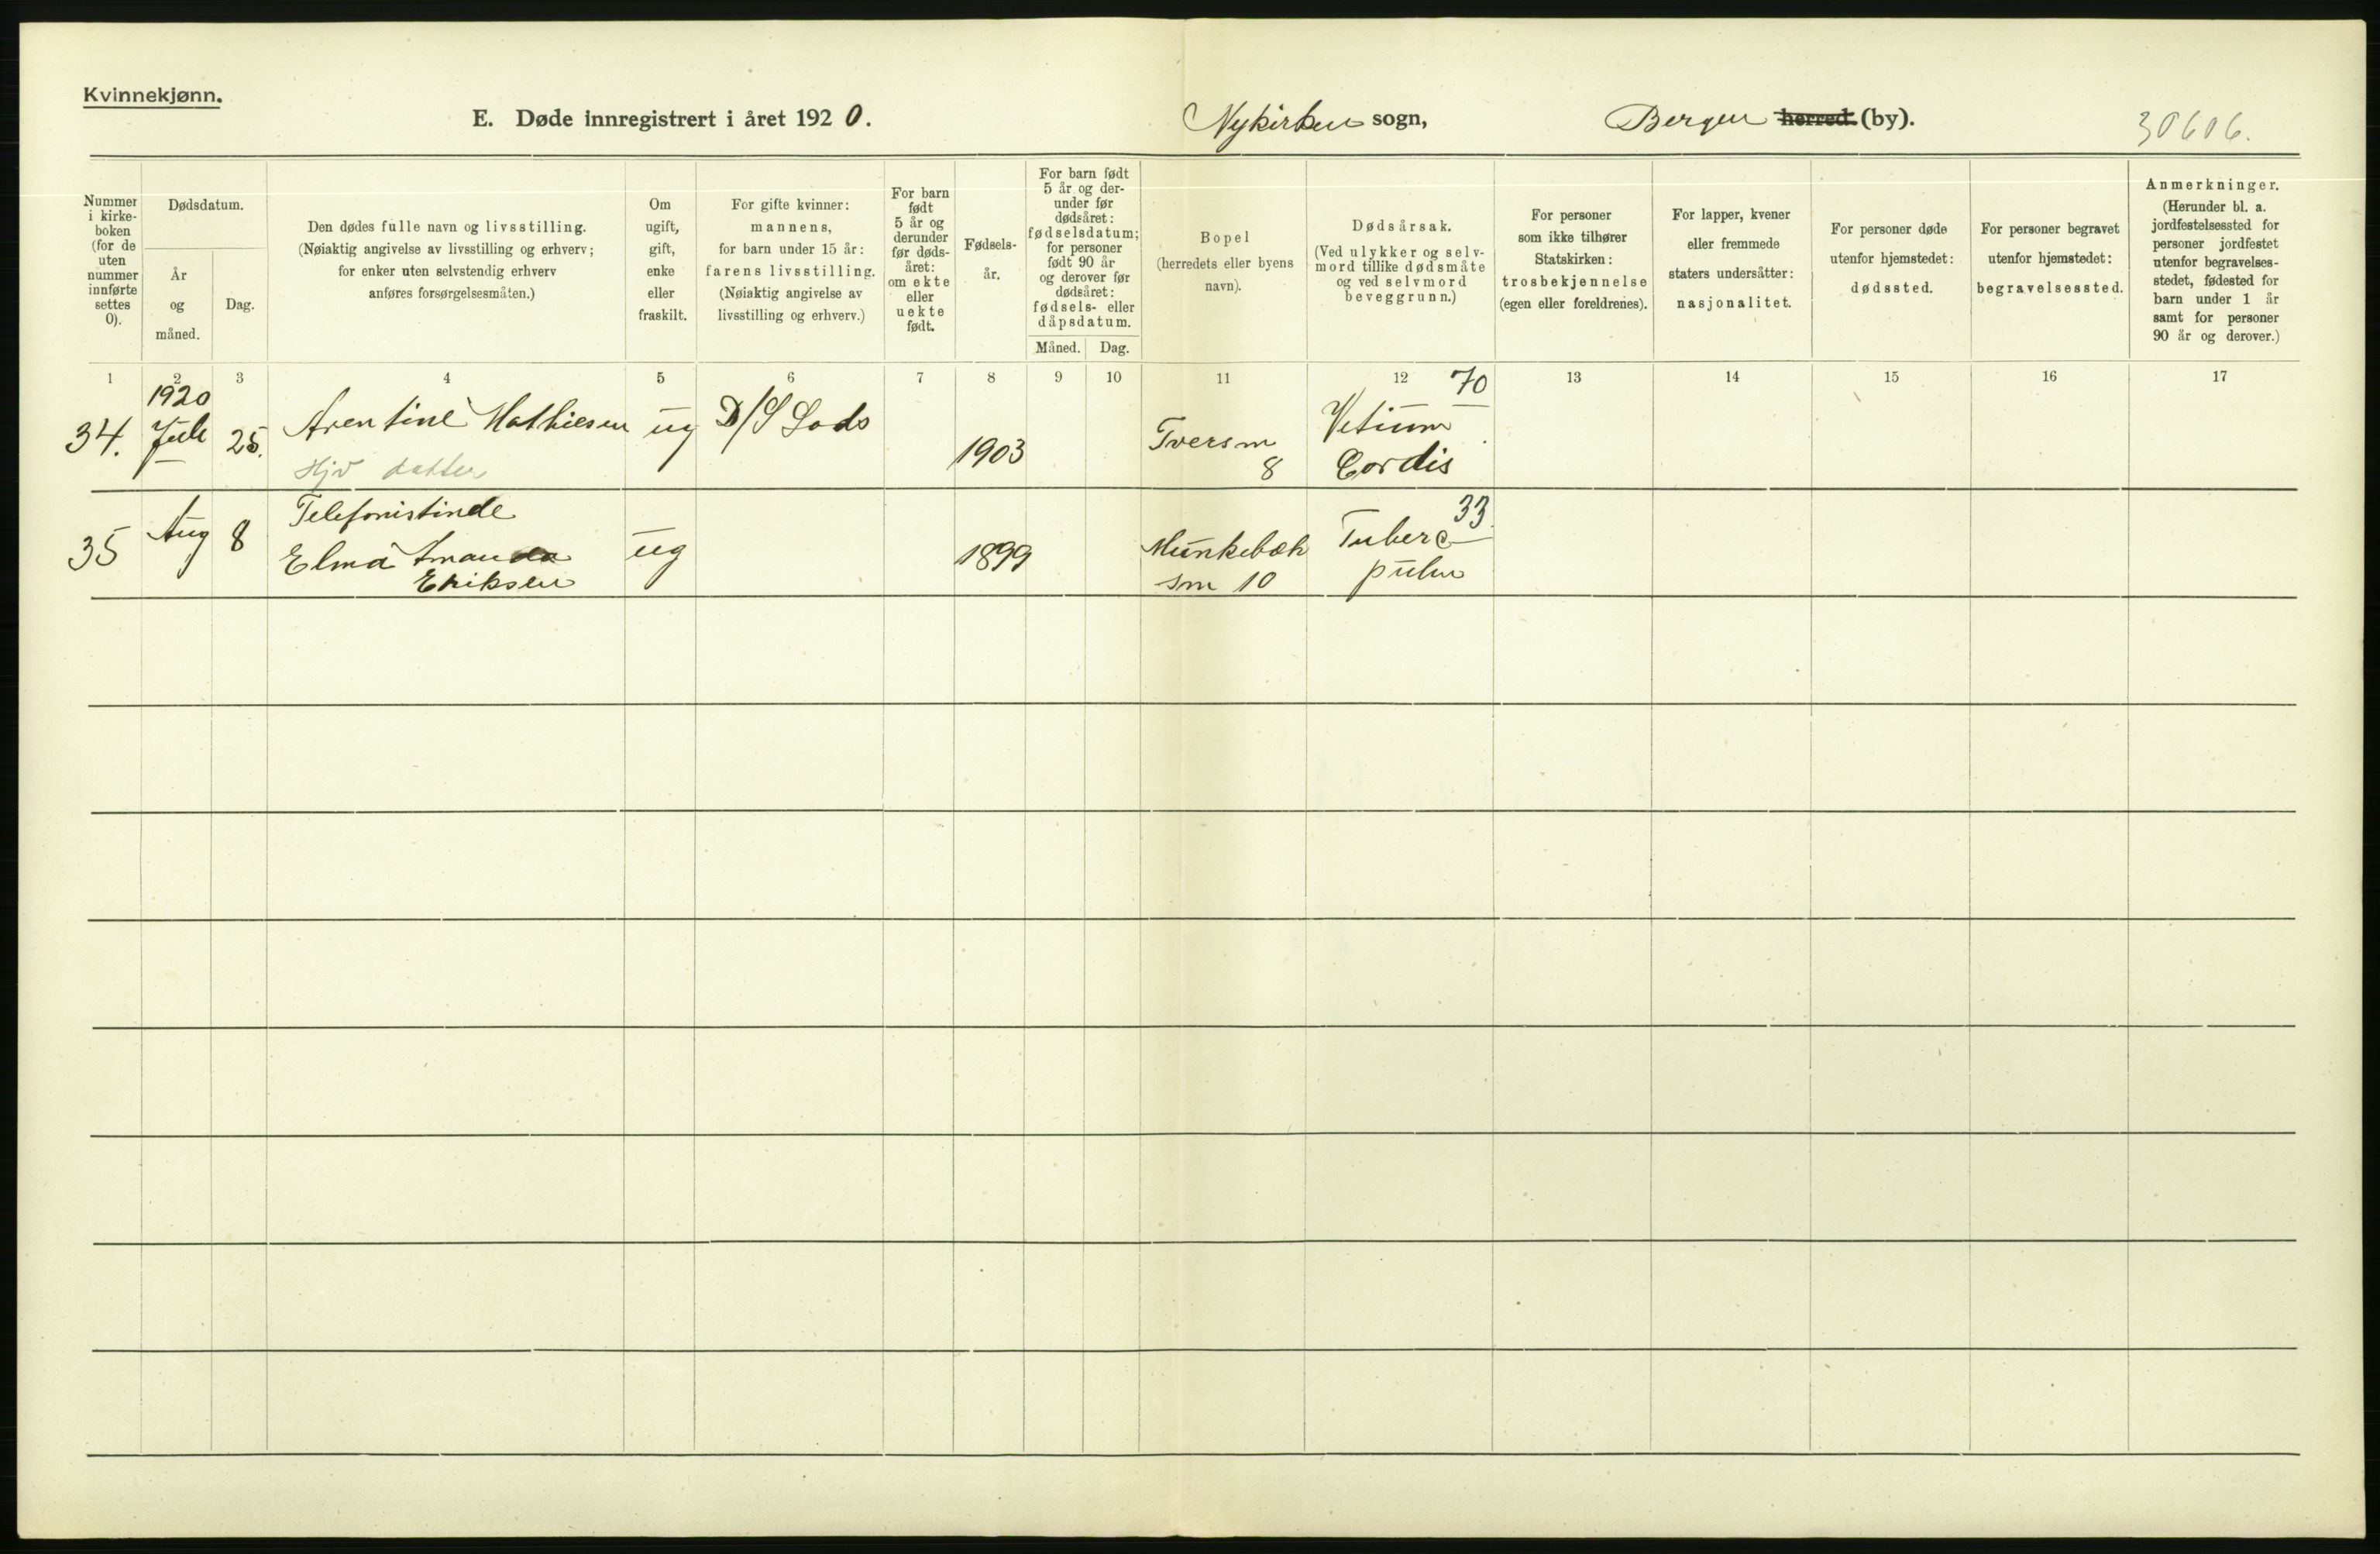 Kvinnekjønn.
E. Døde innregistrert i året 1920.
Nykirken sogn,
Bergen herred (by).
30606.
Nummer
i kirke-
boken
(for de
uten
nummer
innførte
settes
0).
Dødsdatum.
År
og
måned.
Dag.
Den dødes fulle navn og livsstilling.
(Nøiaktig angivelse av livsstilling og erhverv;
for enker uten selvstendig erhverv
anføres forsørgelsesmåten.)
Om
ugift,
gift,
enke
eller
fraskilt.
For gifte kvinner:
mannens,
for barn under 15 år:
farens livsstilling.
(Nøiaktig angivelse av
livsstilling og erhverv.)
For barn
født
5 år og
derunder
før døds-
året:
om ekte
eller
uekte
født.
Fødsels-
år.
For barn født
5 år og der-
under før
dødsåret:
fødselsdatum;
for personer
født 90 år
og derover før
dødsåret:
fødsels- eller
dåpsdatum.
Måned.
Dag.
Bopel
(herredets eller byens
navn).
Dødsårsak.
(Ved ulykker og selv-
mord tillike dødsmåte
og ved selvmord
beveggrunn.)
For personer
som ikke tilhører
Statskirken:
trosbekjennelse
(egen eller foreldrenes).
For lapper, kvener
eller fremmede
staters undersåtter:
nasjonalitet.
For personer døde
utenfor hjemstedet:
dødssted.
For personer begravet
utenfor hjemstedet:
begravelsessted.
Anmerkninger.
(Herunder bl. a.
jordfestelsessted for
personer jordfestet
utenfor begravelses-
stedet, fødested for
barn under 1 år
samt for personer
90 år og derover.)
1 2 3 4 5 6 7 8 9 10 11 12 13 14 15 16 17
1920
34. Juli 25. Arentine Mathiesen ug D/S Lods 1903 Tversm 8 Vitium Cordis 70
Hjv datter
Telefonistinde
35 Aug 8 Elma Amanda Eriksen ug 1899 Munkebæk sm 10 Tuberc pulm 33